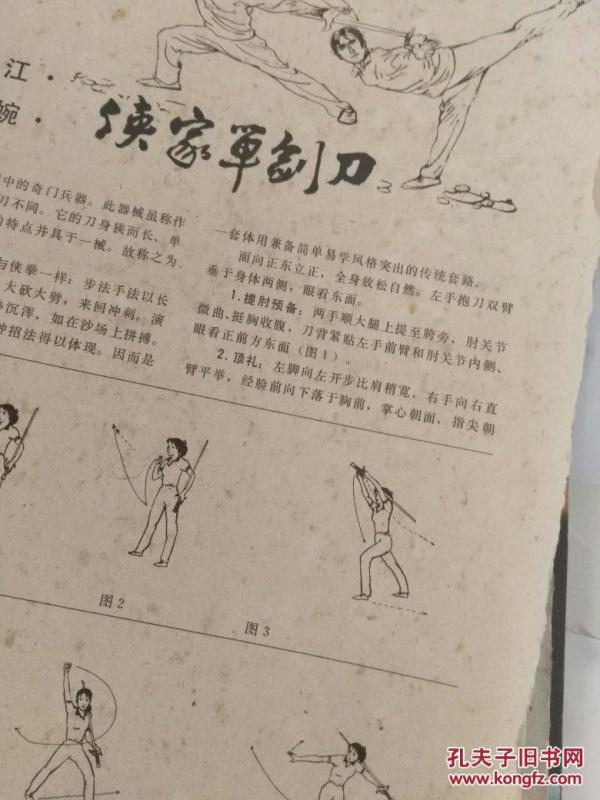 江·
婉·
侠家单剑刀
中的奇门兵器。此器械虽称作
刀不同。它的刀身狭而长、单
的特点并具于一械。故称之为
与侠拳一样：步法手法以长
大砍大劈，来回冲刺。演
沉浑，如在沙场上拼搏。
种招法得以体现。因而是
一套体用兼备简单易学风格突出的传统套路。
面向正东立正，全身放松自然。左手抱刀双臂
垂于身体两侧、眼看东面。
1.提肘预备：两手顺大腿上提至胯旁，肘关节
微曲、挺胸收腹，刀背紧贴左手前臂和肘关节内侧、
眼看正前方东面（图1）。
2.顶礼：左脚向左开步比肩稍宽，右手向右直
臂平举，经脸前向下落于胸前，掌心朝面、指尖朝
图2
图3
孔夫子旧书网
www.kongfz.com